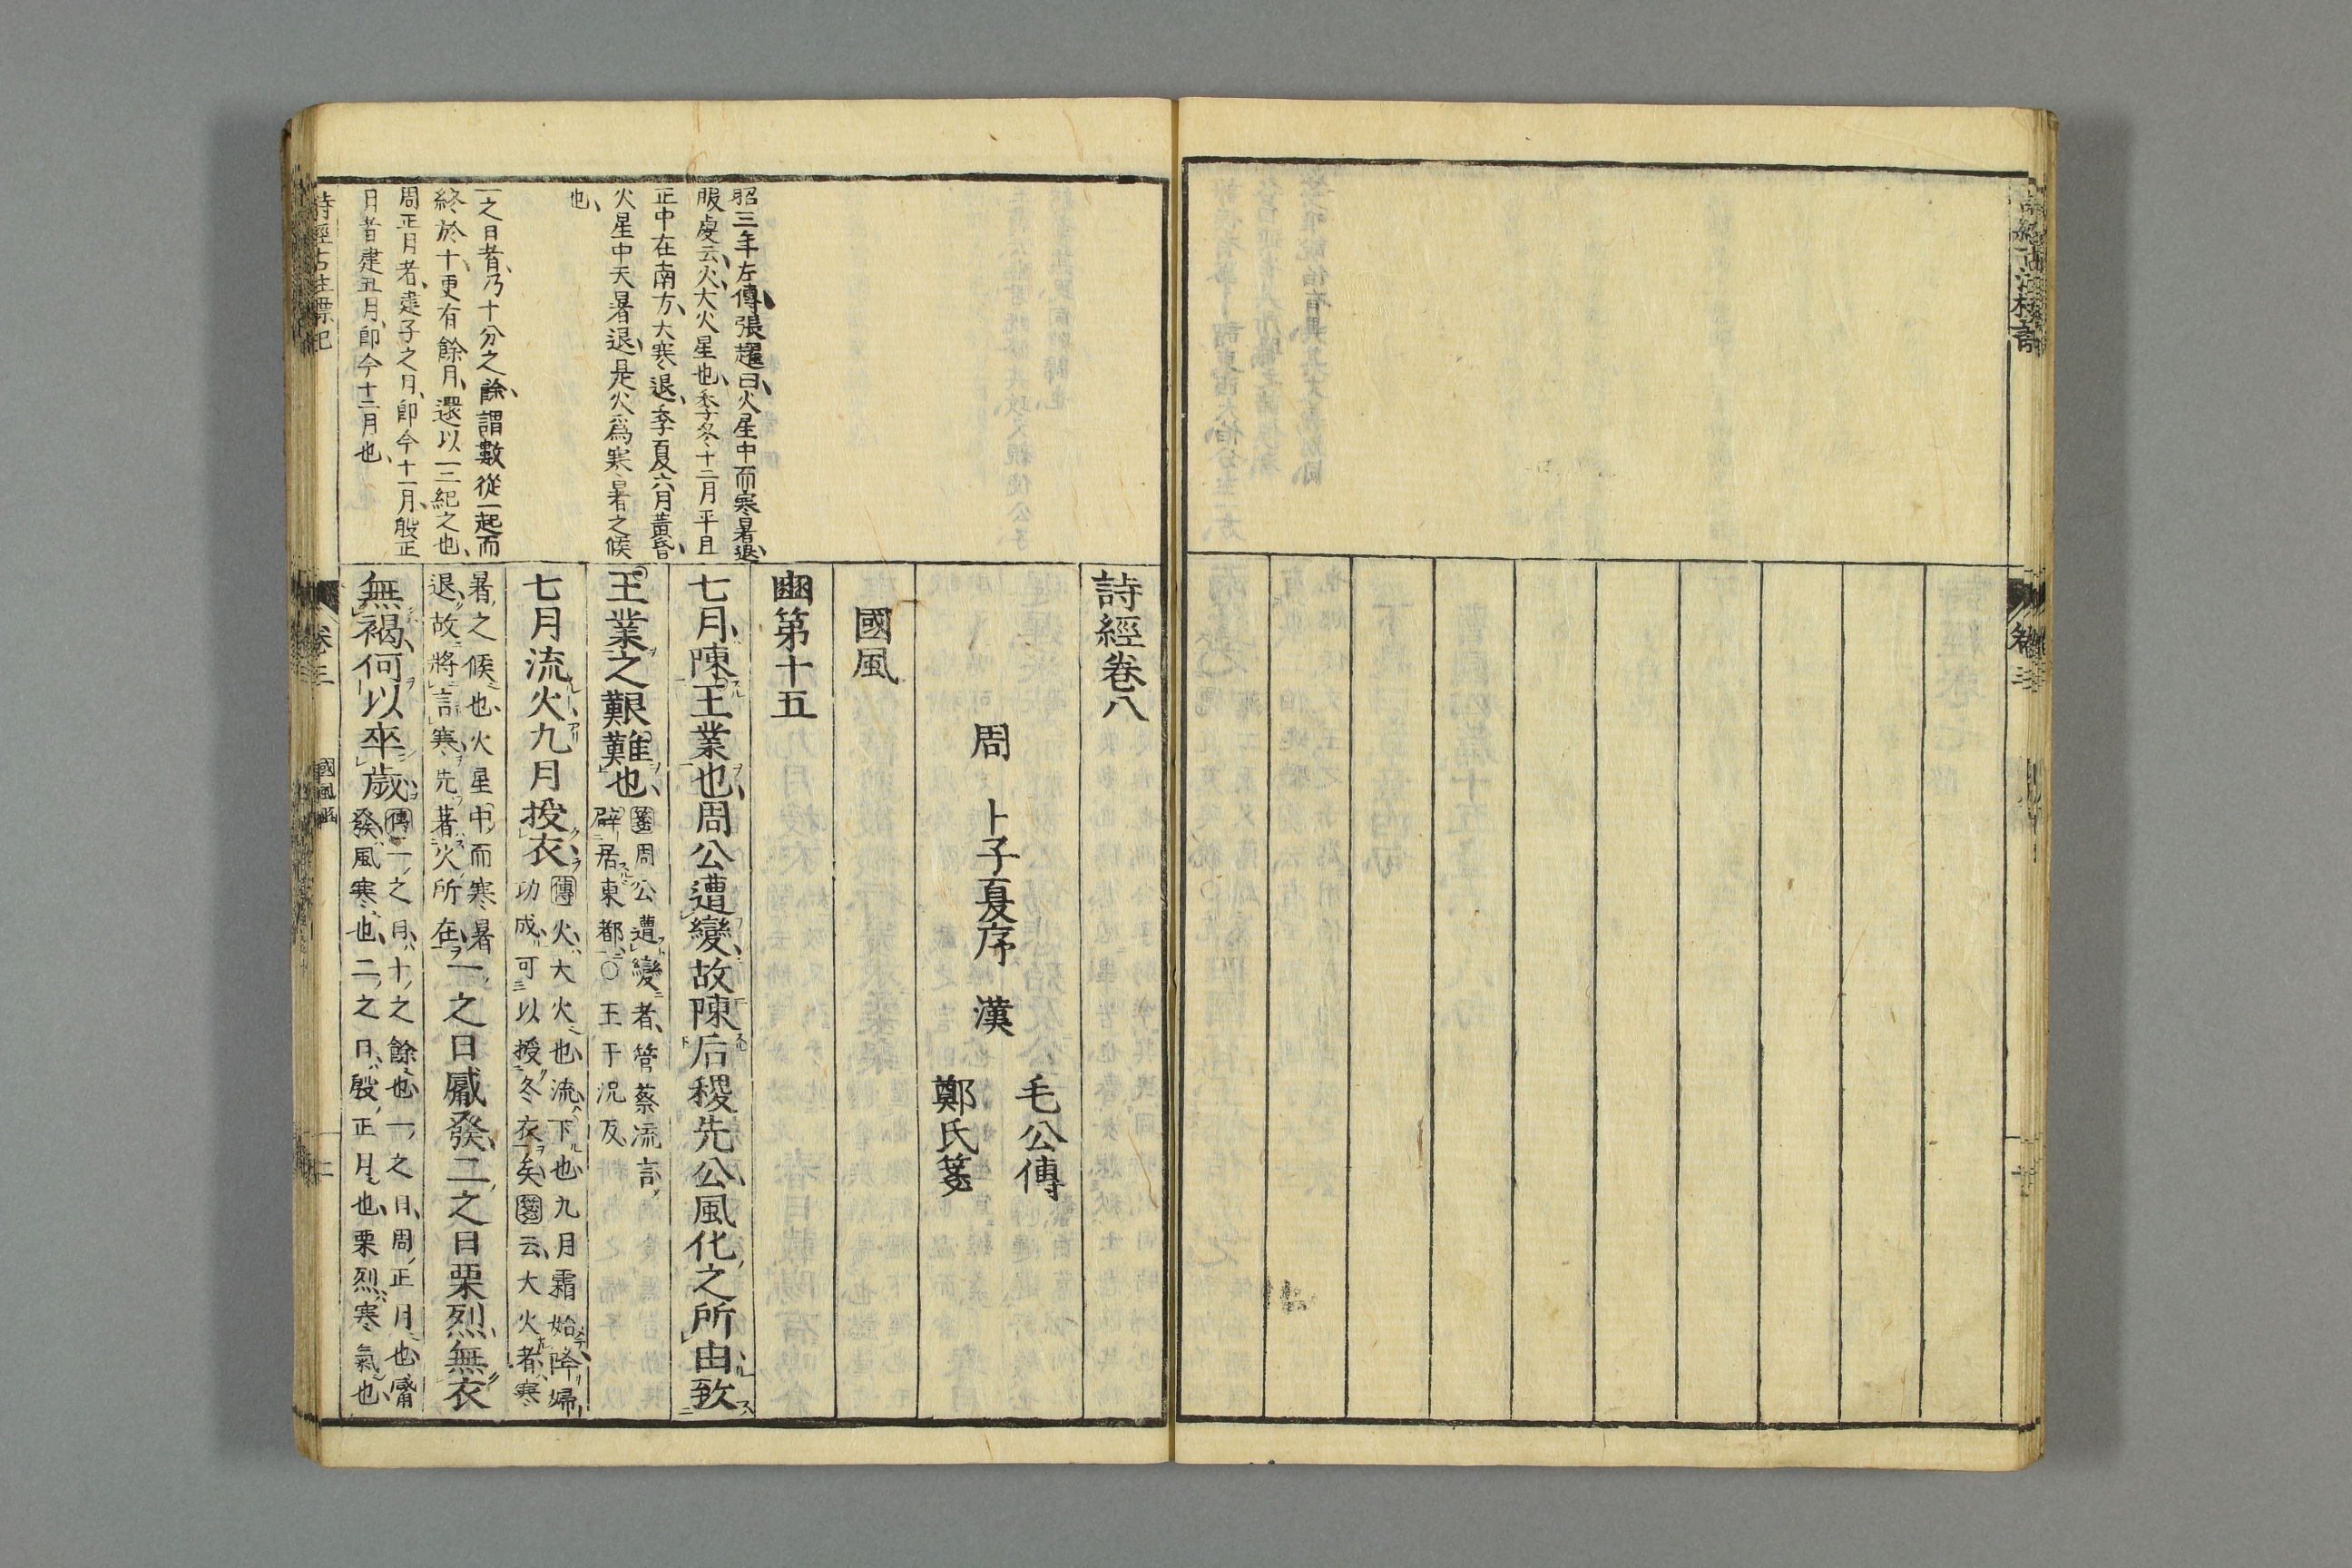 詩經卷八
周　卜子夏序　漢
毛公傳
鄭氏箋
國風
豳第十五
七月陳王業也周公遭變故陳后稷先公風化之所由致
王業之艱難也
箋周公遭變者管蔡流言
辟居東都○王于況反
七月流火九月授衣
傳火大火也流下也九月霜始降婦
功成可以授冬衣矣箋云大火者寒
暑之候也火星中而寒暑
退故將言寒先著火所在
一之日觱發二之日栗烈無衣
無褐何以卒歲
傳一之日十之餘也一之日周正月也觱
發風寒也二之日殷正月也栗烈寒氣也
昭三年左傳張趯曰火星中而寒暑退
服虔云火大火星也季冬十二月平旦
正中在南方大寒退季夏六月黃昏
火星中天暑退是火爲寒暑之候
也
一之日者乃十分之餘謂數從一起而
終於十更有餘月還以一二紀之也
周正月者建子之月卽今十一月殷正
月者建丑月卽今十二月也
卷三
國風豳